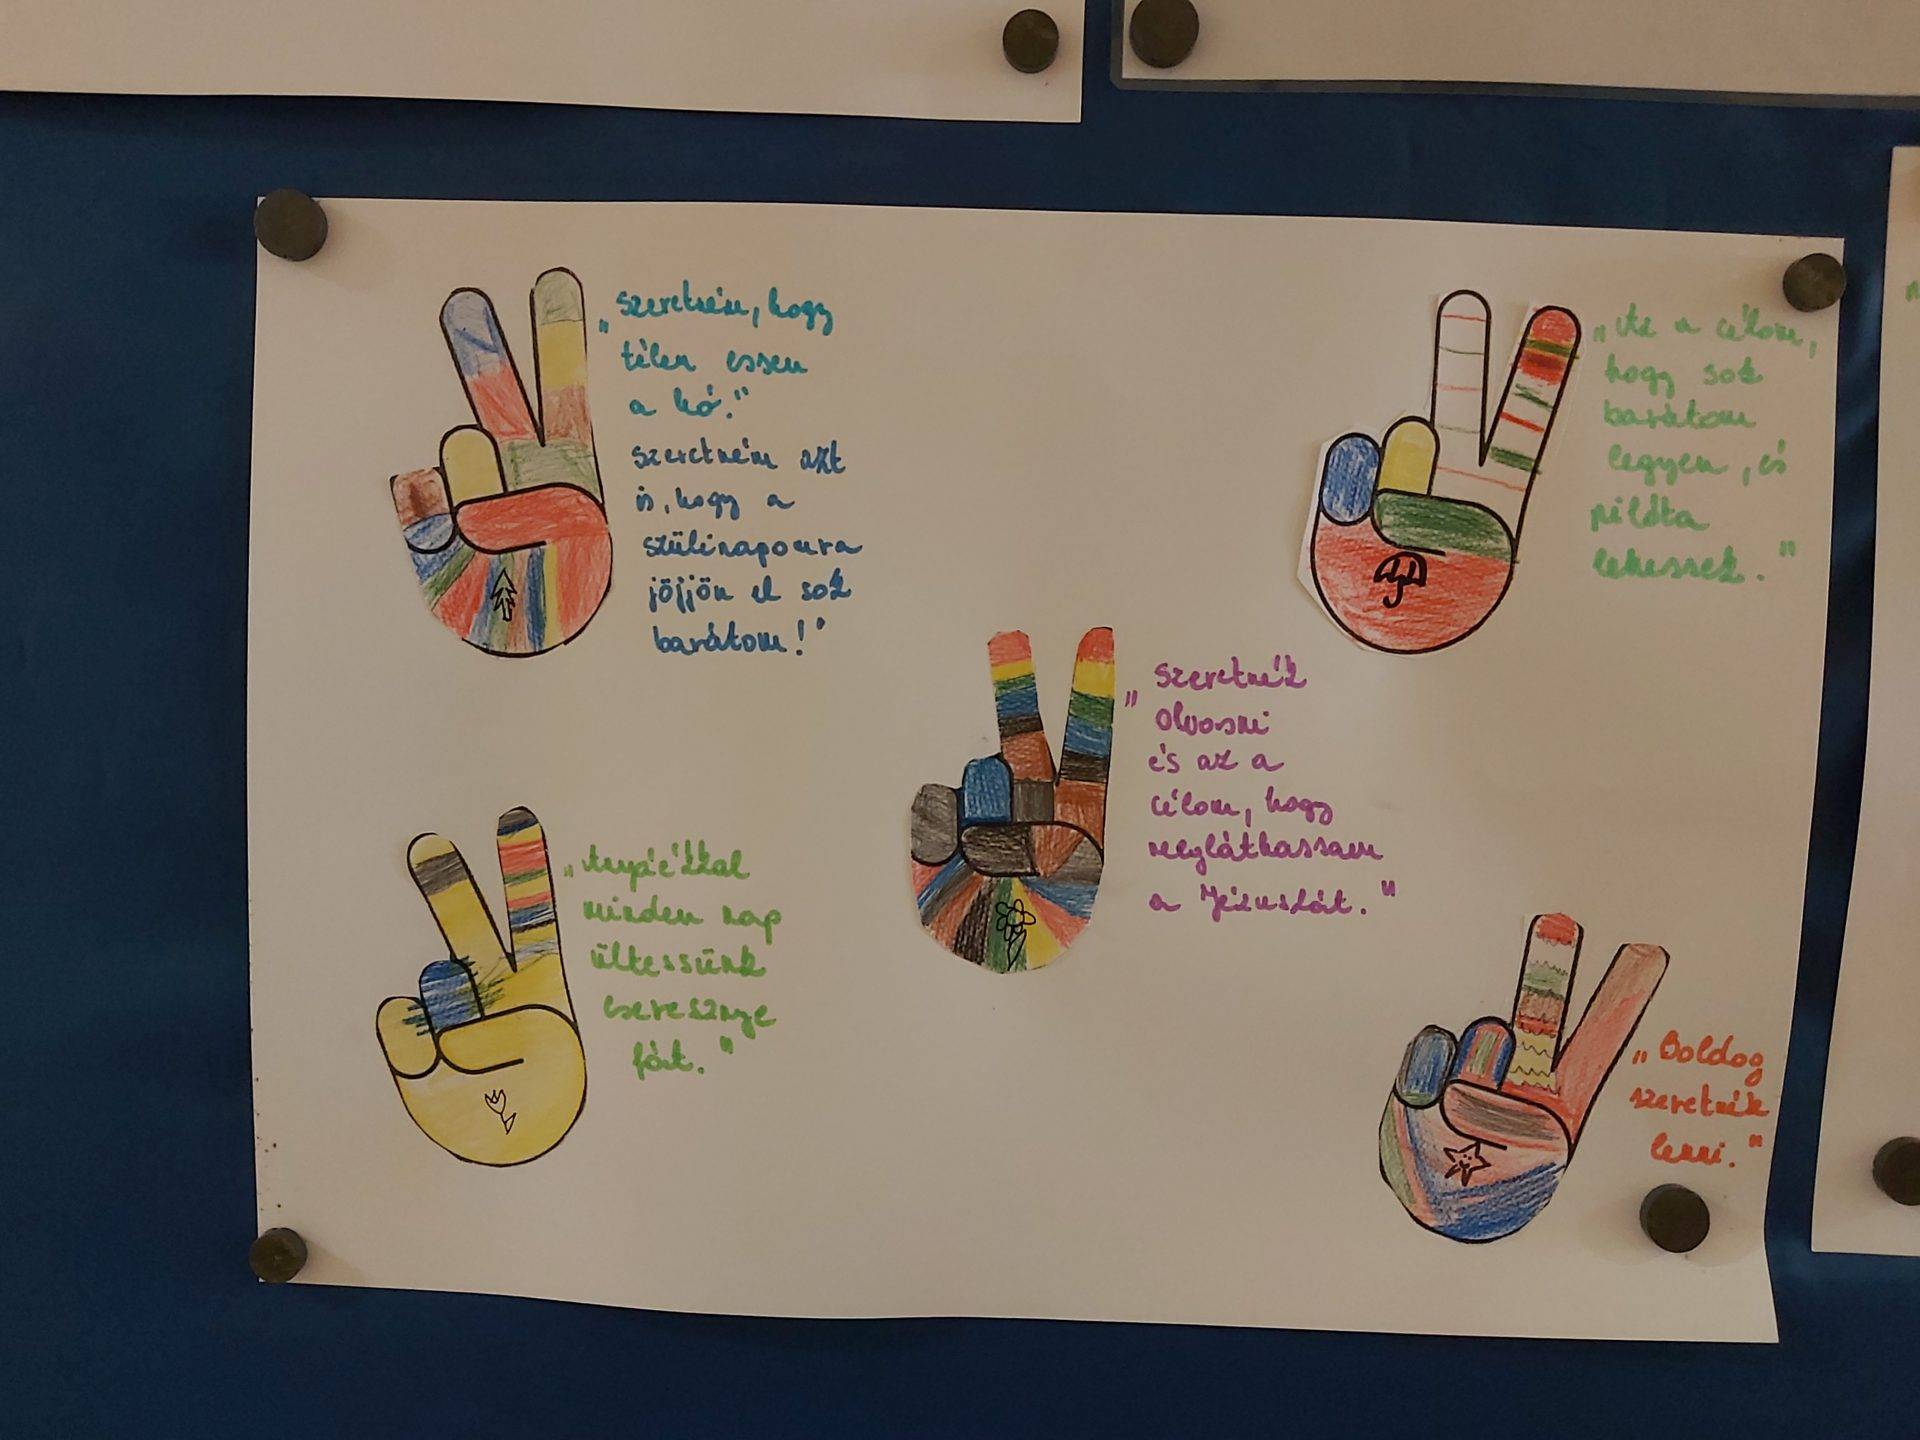 „Szeretném, hogy
télen essen
a hó."
Szeretném azt
is, hogy a
szülinapomra
jöjjön el sok
barátom!"
„Az a célom,
hogy sok
barátom
legyen, és
példa
lehessek."
„Szeretnék
olvasni
és az a
célom, hogy
megláthassam
a Jézuskát."
„Anyáékkal
minden nap
ültessünk
cseresznye
fát."
„Boldog
szeretnék
lenni."